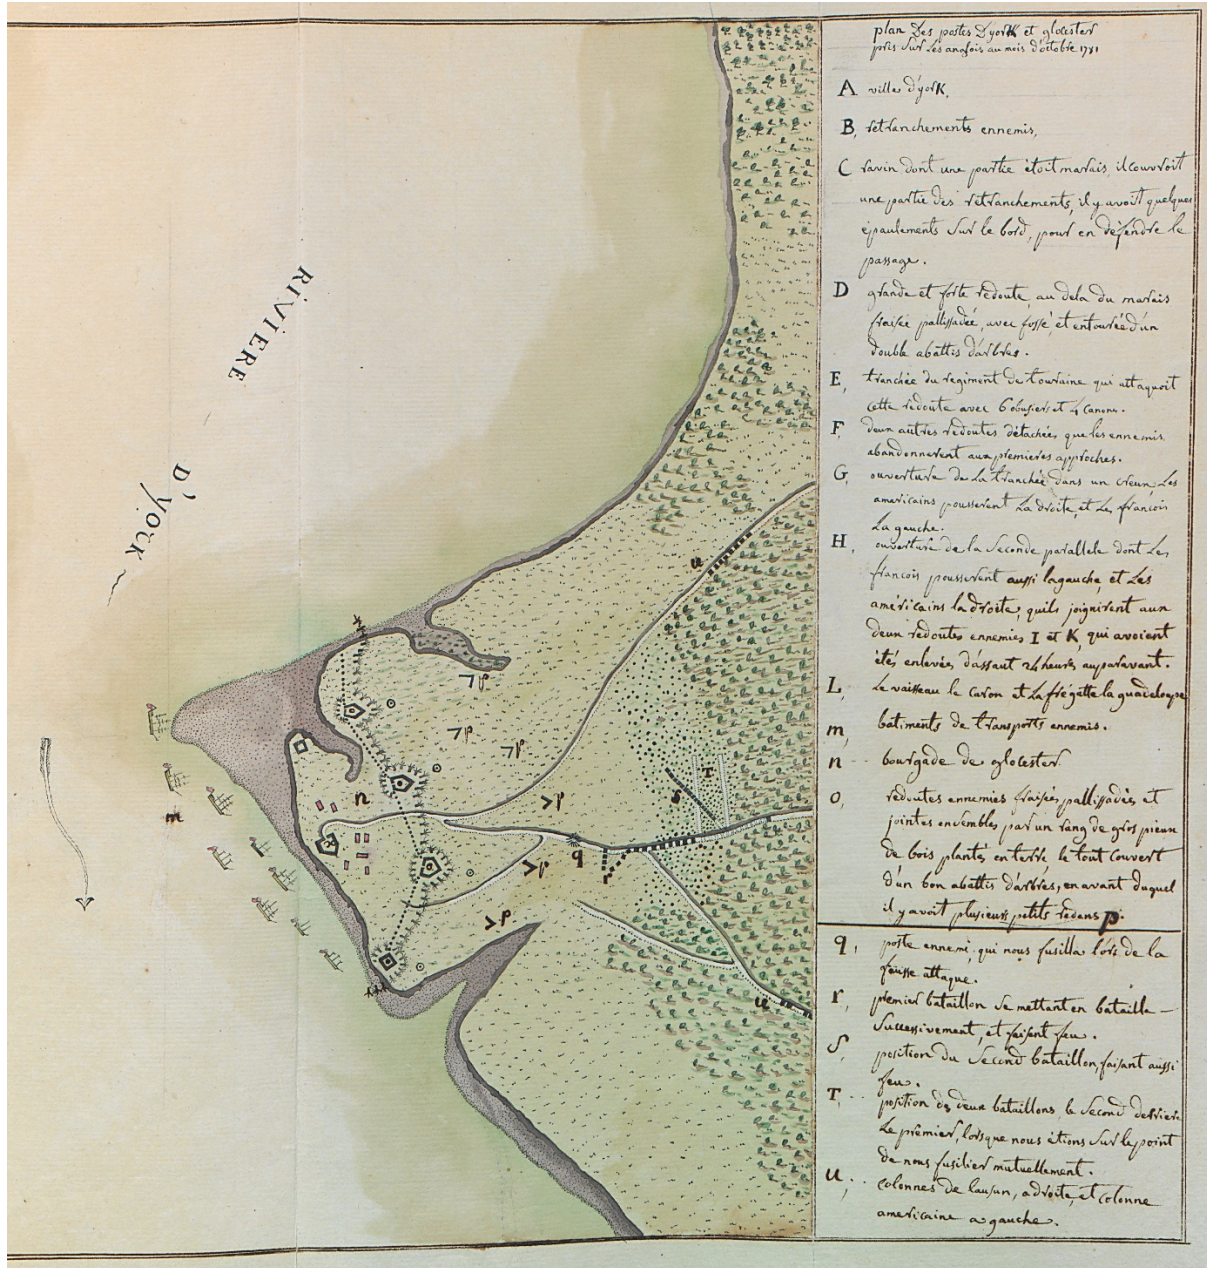 plan Des postes D'yorK et glocester
pris sur Les anglois au mois d'octobre 1781
A ville d'yorK,
B, retranchements ennemis,
C ravin dont une partie étoit marais, il couvroit
une partie des retranchements, il y avoit quelques
épaulements sur le bord, pour en défendre le
passage.
D grande et forte redoute, au dela du marais
fraisée pallissadée, avec fossé, et entourée d'un
double abattis d'arbres.
E, tranchée du regiment de touraine qui attaquoit
cette redoute avec 6 obusiers et 4 canons.
F, deux autres redoutes détachées que les ennemis
abandonnerent aux premieres approches.
G, ouverture de La tranchée dans un creux, Les
americains pousserent La droite, et Les francois
La gauche.
H, ouverture de la Seconde parallele dont Les
francois pousserent aussi la gauche, et Les
américains la droite, quils joignirent aux
deux redoutes ennemies I et K, qui avoient
étés enlevées d'assaut 24 heures auparavant.
L Le vaisseau le caron et La frégatte la guadeloupe
m, batiments de transports ennemis.
n bourgade de glocester
o, redoutes ennemies fraisées, pallissadées et
jointes ensembles par un rang de gros pieux
de bois plantés en terre le tout couvert
d'un bon abattis d'arbres, en avant duquel
il y avoit plusieurs petits redens p.
q, poste ennemi, qui nous fusilla lors de la
fausse attaque.
r, premier bataillon se mettant en bataille
Successivement, et faisant feu.
S, position du Second bataillon, faisant aussi
feu.
T, position des deux bataillons le Second derriere
Le premier, lorsque nous étions sur le point
de nous fusilier mutuellement.
u, colonnes de lausun, a droite, et colonne
americaine a gauche.
RIVIERE
D'YOrK
u
p
p
p
n
p
T
S
m
p
q
r
p
u